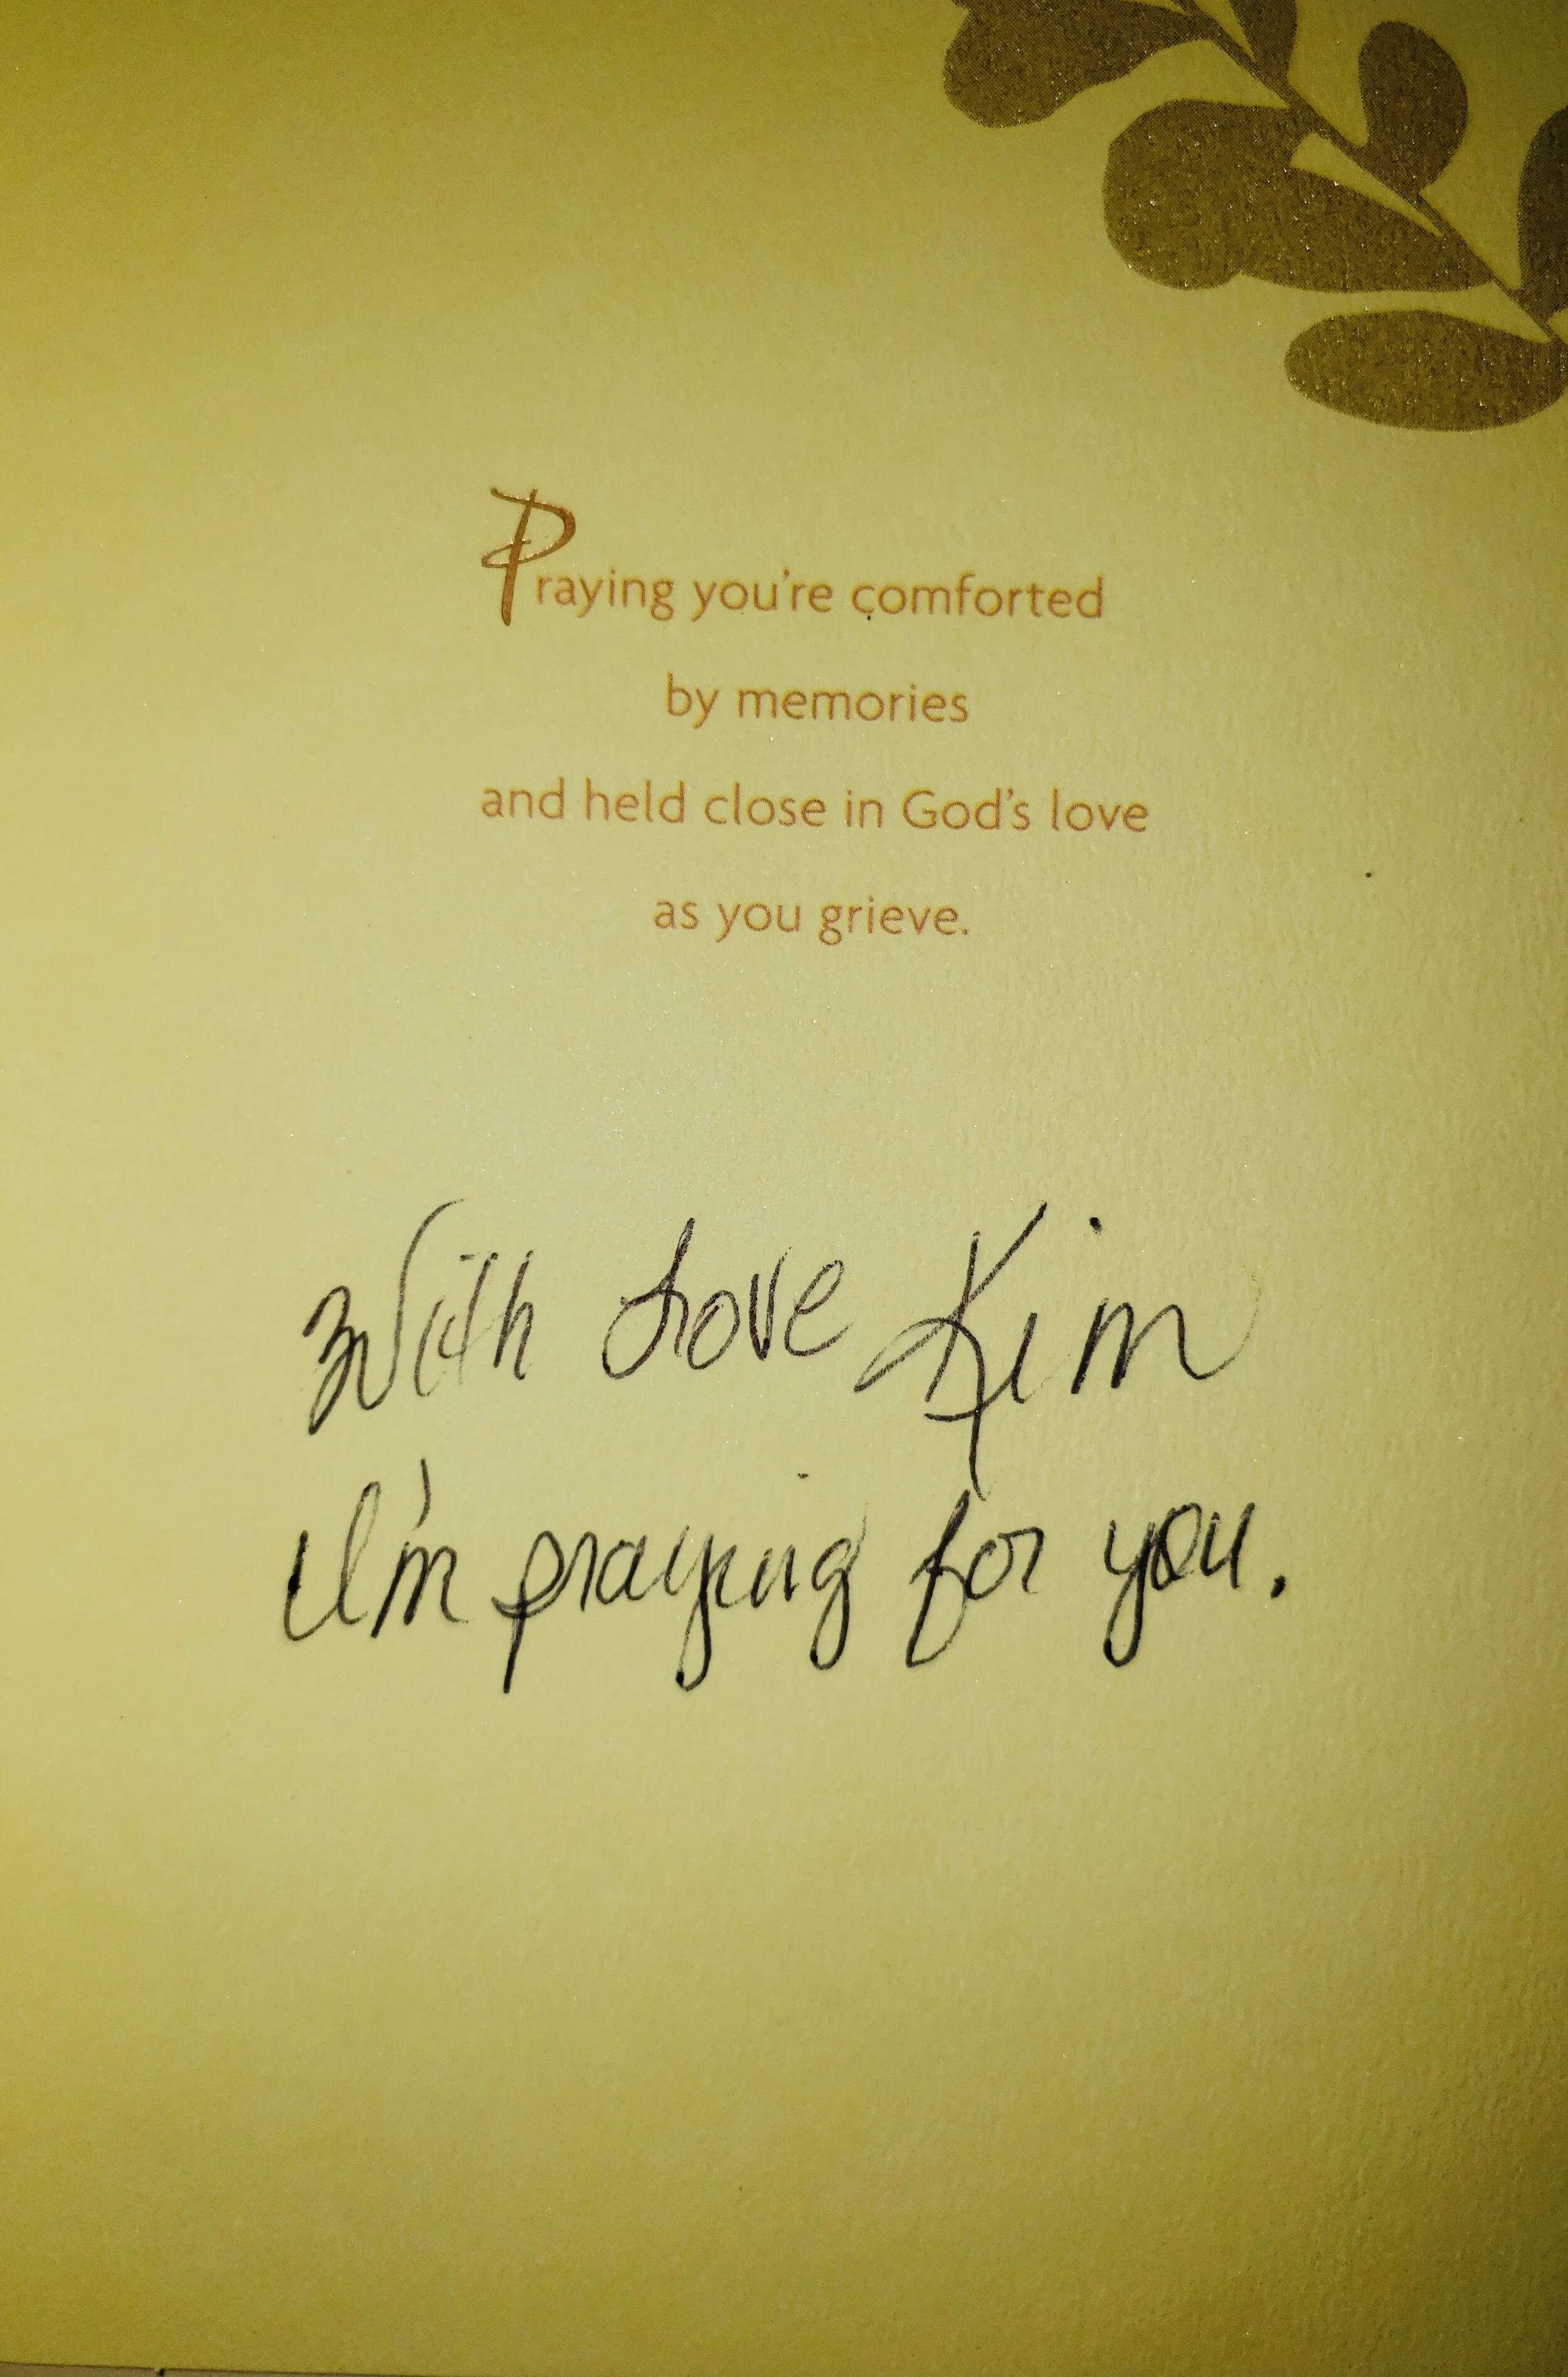 Praying you're comforted
by memories
and held close in God's love
as you grieve.
With Love Kim
I'm praying for you.